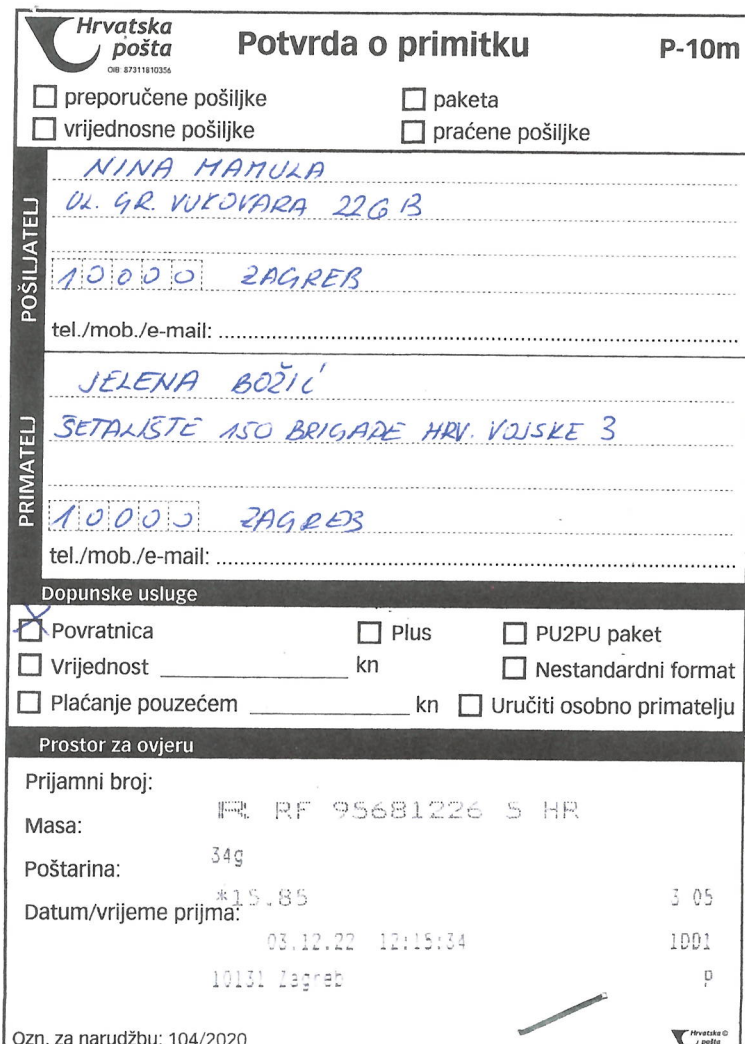 Hrvatska
pošta
OIB: 87311810356
Potvrda o primitku
P-10m
preporučene pošiljke
paketa
vrijednosne pošiljke
praćene pošiljke
POŠILJATELJ
NINA MAMULA
UL. GR. VUKOVARA 226 B
10000 ZAGREB
tel./mob./e-mail:
PRIMATELJ
JELENA BOŽIĆ
ŠETALIŠTE 150 BRIGADE HRV. VOJSKE 3
10000 ZAGREB
tel./mob./e-mail:
Dopunske usluge
X Povratnica
Plus
PU2PU paket
Vrijednost kn
Nestandardni format
Plaćanje pouzećem kn
Uručiti osobno primatelju
Prostor za ovjeru
Prijamni broj:
R RF 95681226 5 HR
Masa:
34g
Poštarina:
*15.85 3 05
Datum/vrijeme prijma:
03.12.22 12:15:34 1001
10131 Zagreb P
Ozn. za narudžbu: 104/2020
Hrvatska
pošta